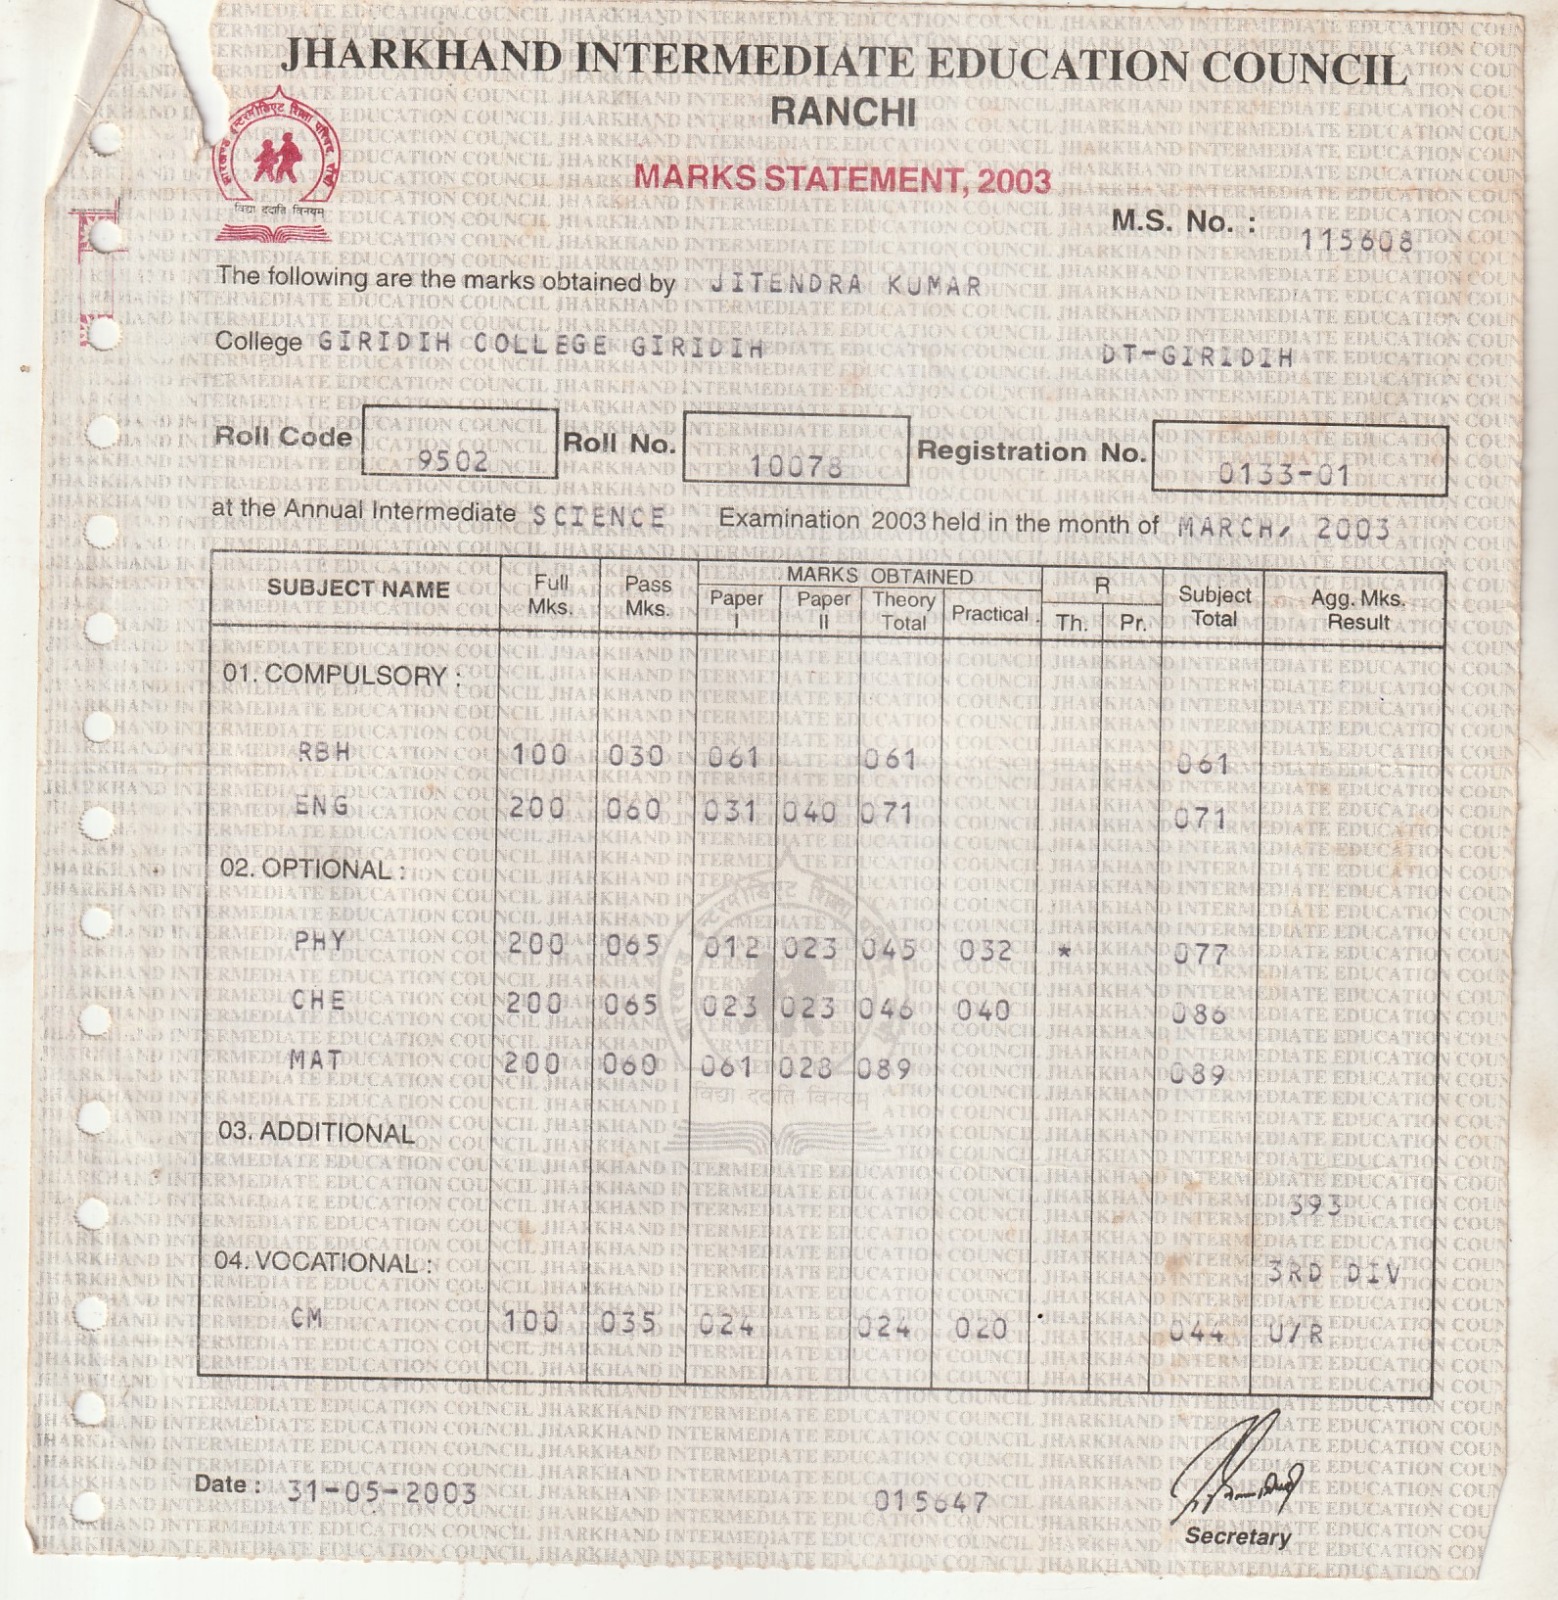 JHARKHAND INTERMEDIATE EDUCATION COUNCIL
RANCHI
झारखण्ड इन्टरमीडिएट शिक्षा परिषद राँची
विद्या ददाति विनयम्
MARKS STATEMENT, 2003
M.S. No. : 115608
The following are the marks obtained by JITENDRA KUMAR
College GIRIDIH COLLEGE GIRIDIH DT-GIRIDIH
Roll Code 9502 Roll No. 10078 Registration No. 0133-01
at the Annual Intermediate SCIENCE Examination 2003 held in the month of MARCH, 2003
SUBJECT NAME Full Mks. Pass Mks. MARKS OBTAINED R Subject Total Agg. Mks. Result
Paper I Paper II Theory Total Practical Th. Pr.
01. COMPULSORY :
RBH 100 030 061 061 061
ENG 200 060 031 040 071 071
02. OPTIONAL :
PHY 200 065 012 023 045 032 * 077
CHE 200 065 023 023 046 040 086
MAT 200 060 061 028 089 089
विद्या ददाति विनयम्
03. ADDITIONAL
393
04. VOCATIONAL : 3RD DIV
CM 100 035 024 024 020 044 U/R
Date : 31-05-2003 015647
Secretary